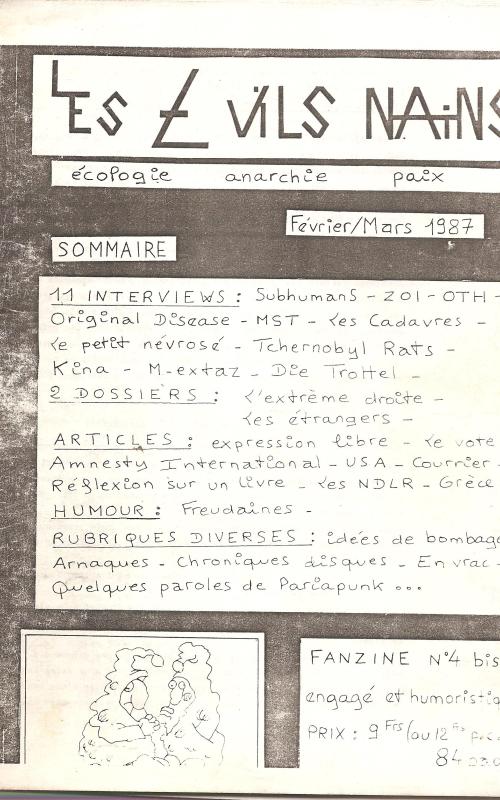 LES EVILS NAINS
écologie anarchie paix
Février/Mars 1987
SOMMAIRE
11 INTERVIEWS : Subhumans - ZOI - OTH -
Original Disease - MST - Les Cadavres -
Le petit névrosé - Tchernobyl Rats -
Kina - M-extaz - Die Trottel -
2 DOSSIERS : L'extrême droite -
Les étrangers -
ARTICLES : expression libre - Le vote
Amnesty International - USA - Courrier -
Réflexion sur un livre - Les NDLR - Grèce
HUMOUR : Freudaines -
RUBRIQUES DIVERSES : idées de bombage
Arnaques - Chroniques disques - En vrac -
Quelques paroles de Pariapunk ...
FANZINE N°4 bis
engagé et humoristiq
PRIX : 9 Frs (ou 12 Frs
84